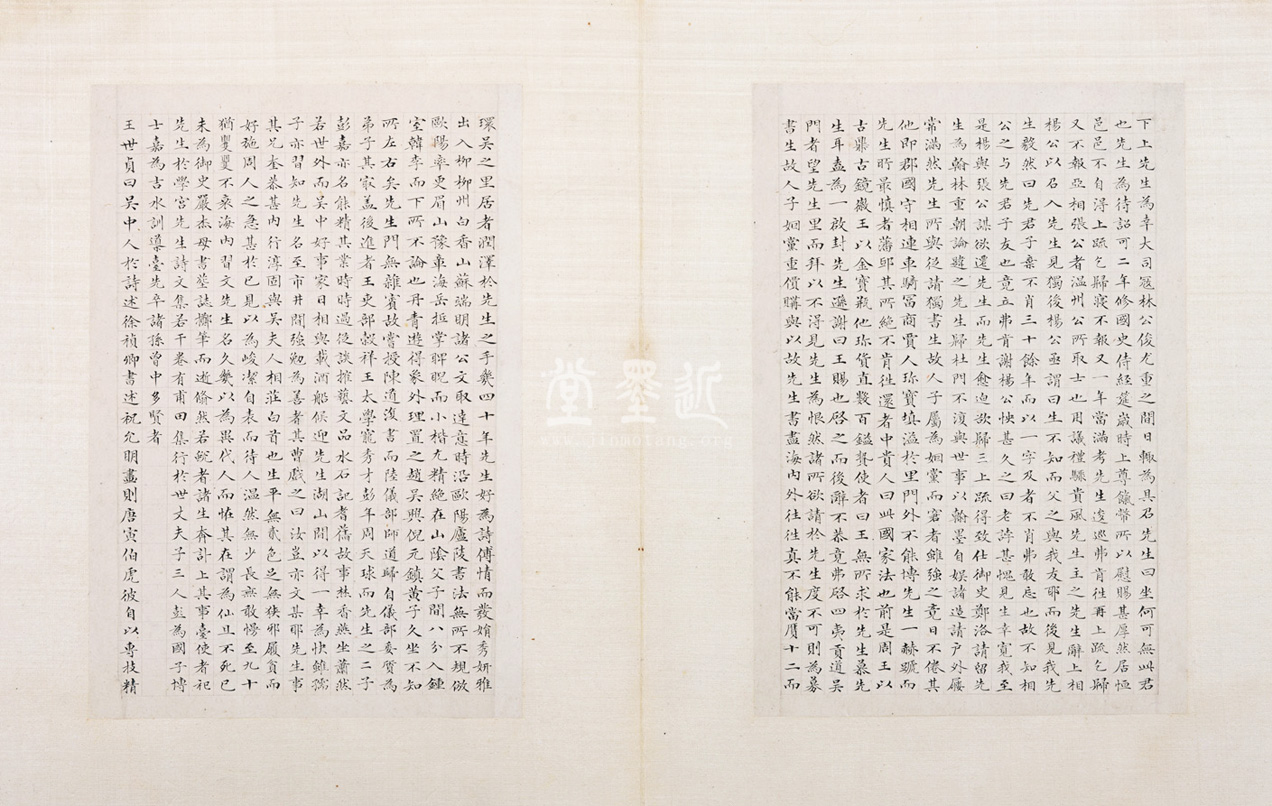 下上先生為幸大司寇林公俊尤重之間日輒為具召先生曰坐何可無此君
也先生為待詔可二年修國史侍經筵歲時上尊餼幣所以慰賜甚厚然居恒
邑邑不自得上疏乞歸寢不報又一年當滿考先生逡巡弗肯往再上疏乞歸
又不報亞相張公者溫州公所取士也用議禮驟貴風先生主之先生辭上相
楊公以召入先生見獨後楊公亟謂曰生不知而父之與我友耶而後見我先
生毅然曰先君子棄不肖三十餘年而以一字及者不肖弗敢忘也故不知相
公之与先君子友也竟立弗肯謝楊公悵甚久之曰老誖甚愧見生幸寬我至
是楊與張公謀欲遷先生而先生愈迫欲歸三上疏得致仕御史鄭洛請留先
生為翰林重朝論韙之先生歸杜門不復與世事以翰墨自娛諸造請戶外屨
常滿然先生所與從請獨書生故人子屬為姻黨而窘者雖強之竟日不倦其
他即郡國守相連車騎富商賈人珍寶填溢於里門外不能博先生一赫蹏而
先生所最慎者藩邸其所絕不肯往還者中貴人曰此國家法也前是周王以
古鼎古鏡徽王以金寶瓶他珍貨直數百鎰贄使者曰王無所求於先生慕先
生耳盍為一啟封先生遜謝曰王賜也啟之而後辭不恭竟弗啟四夷貢道吳
門者望先生里而拜以不得見先生為恨然諸所欲請於先生度不可則為募
書生故人子姻黨重價購與以故先生書盡海內外往往真不能當贋十二而
環吳之里居者潤澤於先生之手幾四十年先生好為詩傅情而發娟秀妍雅
出入柳柳州白香山蘇端明諸公文取達意時沿歐陽廬陵書法無所不規倣
歐陽率更眉山豫章海岳抵掌睥睨而小楷尤精絕在山陰父子間八分入鍾
室韓李而下所不論也丹青遊得象外理置之趙吳興倪元鎮黃子久坐不知
所左右矣先生門無雜賓故嘗授陳道復書而陸儀部師道歸自儀部委質為
弟子其家蓋後進者王吏部穀祥王太學寵秀才彭年周天球而先生之二子
彭嘉亦名能精其業時時過從談搉藝文品水石記耆舊故事焚香燕坐蕭然
若世外而吳中好事家日相與載酒船候迎先生湖山間以得一幸為快雖孺
子亦習知先生名至市井間強勉為善者其曹戲之曰汝豈亦文某耶先生事
其兄奎恭甚內行淳固與吳夫人相莊白首也生平無貳色足無狹邪履貧而
好施周人之急甚於己見以為峻潔自表而待人溫然無少長無敢慢至九十
猶矍矍不衰海內習文先生名久幾以為異代人而怪其在謂為仙且不死已
未為御史嚴杰母書墓誌擲筆而逝翛然若蛻者諸生奔訃上其事臺使者祀
先生於學宮先生詩文集若干卷有甫田集行於世丈夫子三人彭為國子博
士嘉為吉水訓導臺先卒諸孫曾中多賢者
王世貞曰吳中人於詩述徐禎卿書述祝允明畫則唐寅伯虎彼自以專技精
近墨堂
www.jinmotang.org